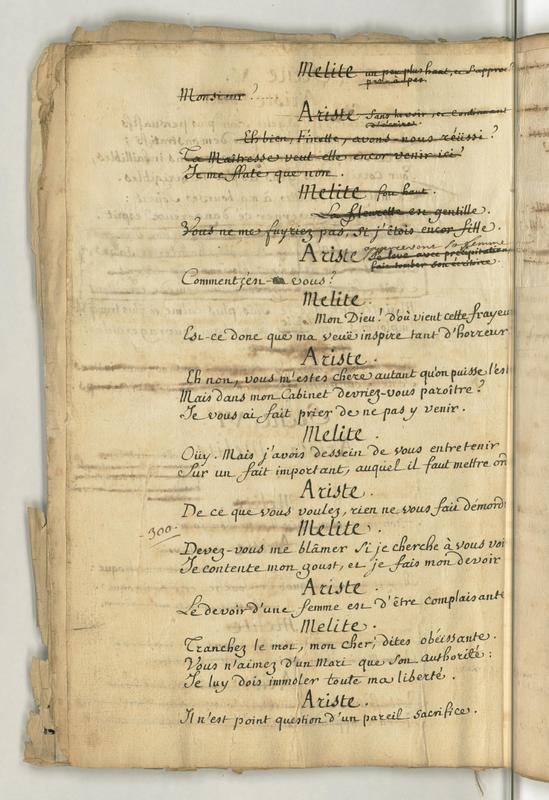 Melite un peu plus haut, et s'appro
pres à pas.
Monsieur? ......
Ariste sans la voir, et continuant
d'écrire.
Eh bien, Finette, avons-nous réüssi?
Ta Maîtresse veut elle encor venir ici?
Je me flate que non.
Melite fou haut.
La fleurette est gentille.
Vous ne me fuyriez pas, si j'étois encor fille.
Ariste appercevant sa femme
se leve avec précipitation
fait tomber son écritoire.
Comment j'en vous?
Melite.
Mon Dieu! d'où vient cette frayeu
Est-ce donc que ma veuë inspire tant d'horreur
Ariste.
Eh non, vous m'estes chere autant qu'on puisse l'est
Mais dans mon Cabinet devriez-vous paroître?
Je vous ai fait prier de ne pas y venir.
Melite.
Oüy. Mais j'avois dessein de vous entretenir
Sur un fait important, auquel il faut mettre or
Ariste.
De ce que vous voulez, rien ne vous fait démord
300.
Melite.
Devez-vous me blâmer si je cherche à vous voi
Je contente mon goust, et je fais mon devoir
Ariste.
Le devoir d'une femme est d'être complaisante
Melite.
Tranchez le mot, mon cher; dites obéissante.
Vous n'aimez d'un Mari que son authorité:
Je luy dois immoler toute ma liberté.
Ariste.
Il n'est point question d'un pareil sacrifice.